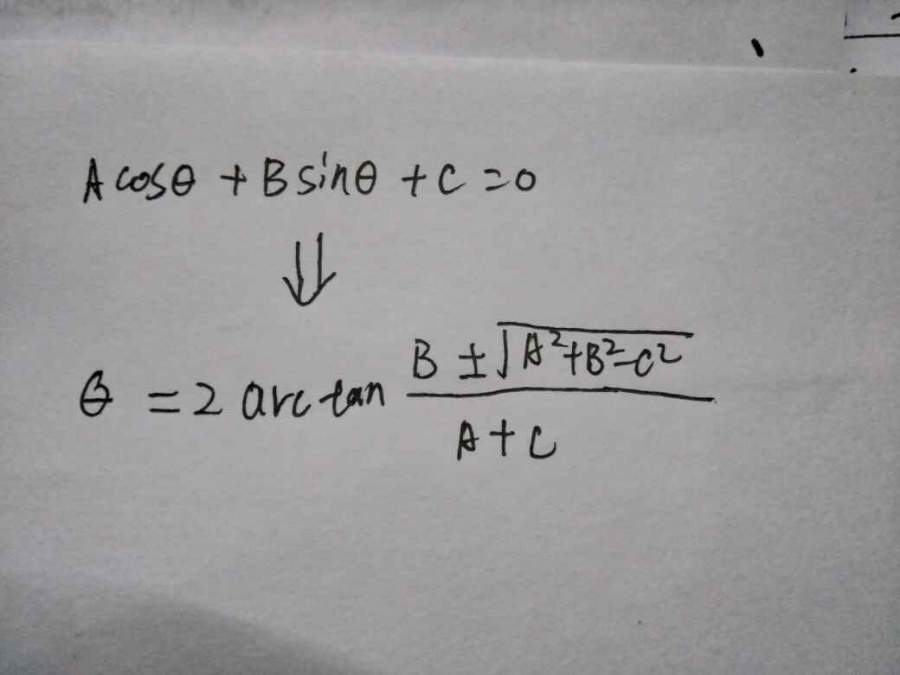 A cosθ + B sinθ + C = 0
⇓
θ = 2 arctan \frac{B ± \sqrt{A²+B²-C²}}{A+C}